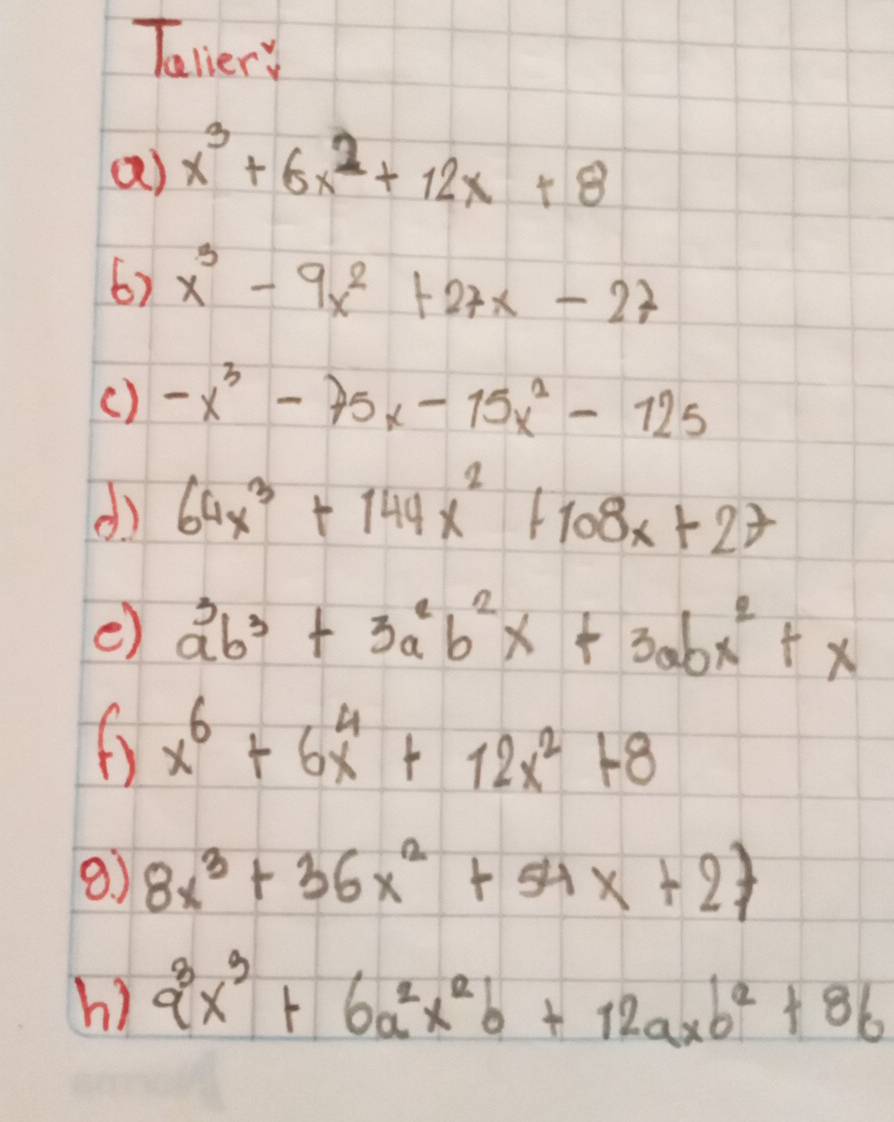 Taller:
a) x³ + 6x² + 12x + 8
b) x³ - 9x² + 27x - 27
c) -x³ - 75x - 15x² - 125
d) 64x³ + 144x² + 108x + 27
e) a³b³ + 3a²b²x + 3abx² + x
f) x⁶ + 6x⁴ + 12x² + 8
g) 8x³ + 36x² + 54x + 27
h) a³x³ + 6a²x²b + 12axb² + 8b
Norma